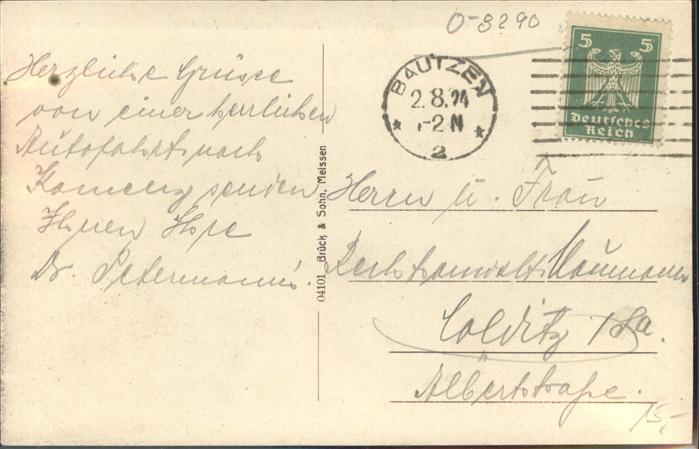 Herzliche Grüsse
von einer herrlichen
Autofahrt nach
Kamenz senden
Ihnen Ihre
Dr. Petermann's.
04101 Brück & Sohn, Meissen
O-8290
BAUTZEN
2.8.24
1-2 N
* *
2
5 5
Deutsches
Reich
Herrn u. Frau
Rechtsanwalt Naumann
Colditz i/Sa.
Albertstraße.
15,-